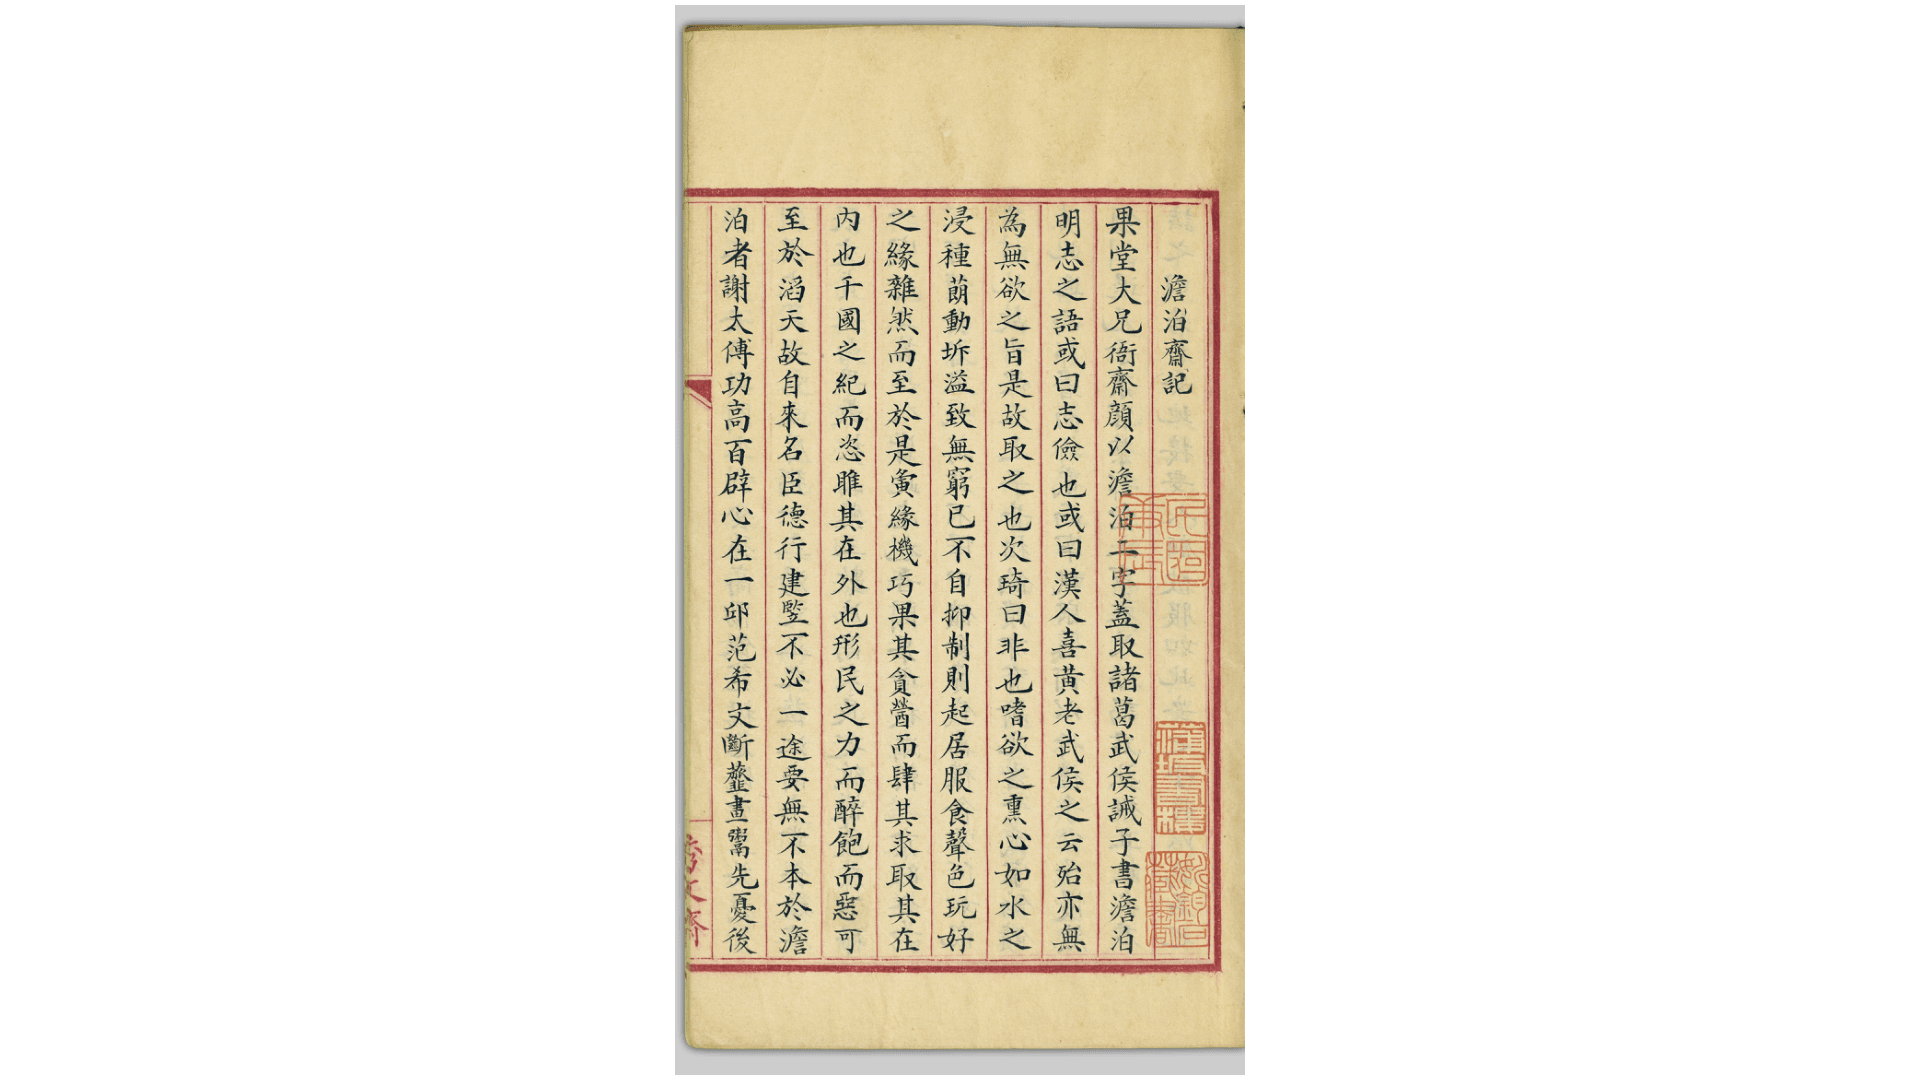 澹泊齋記
果堂大兄衙齋顔以澹泊二字蓋取諸葛武侯誡子書澹泊
明志之語或曰志儉也或曰漢人喜黃老武侯之云殆亦無
為無欲之旨是故取之也次琦曰非也嗜欲之熏心如水之
浸種萠動坼溢致無窮已不自抑制則起居服食聲色玩好
之緣雜然而至於是寅緣機巧果其貪謷而肆其求取其在
内也千國之紀而恣睢其在外也形民之力而醉飽而惡可
至於滔天故自來名臣德行建豎不必一途要無不本於澹
泊者謝太傅功高百辟心在一邱范希文斷虀畫鬻先憂後
秀文齋
蒲坂書樓